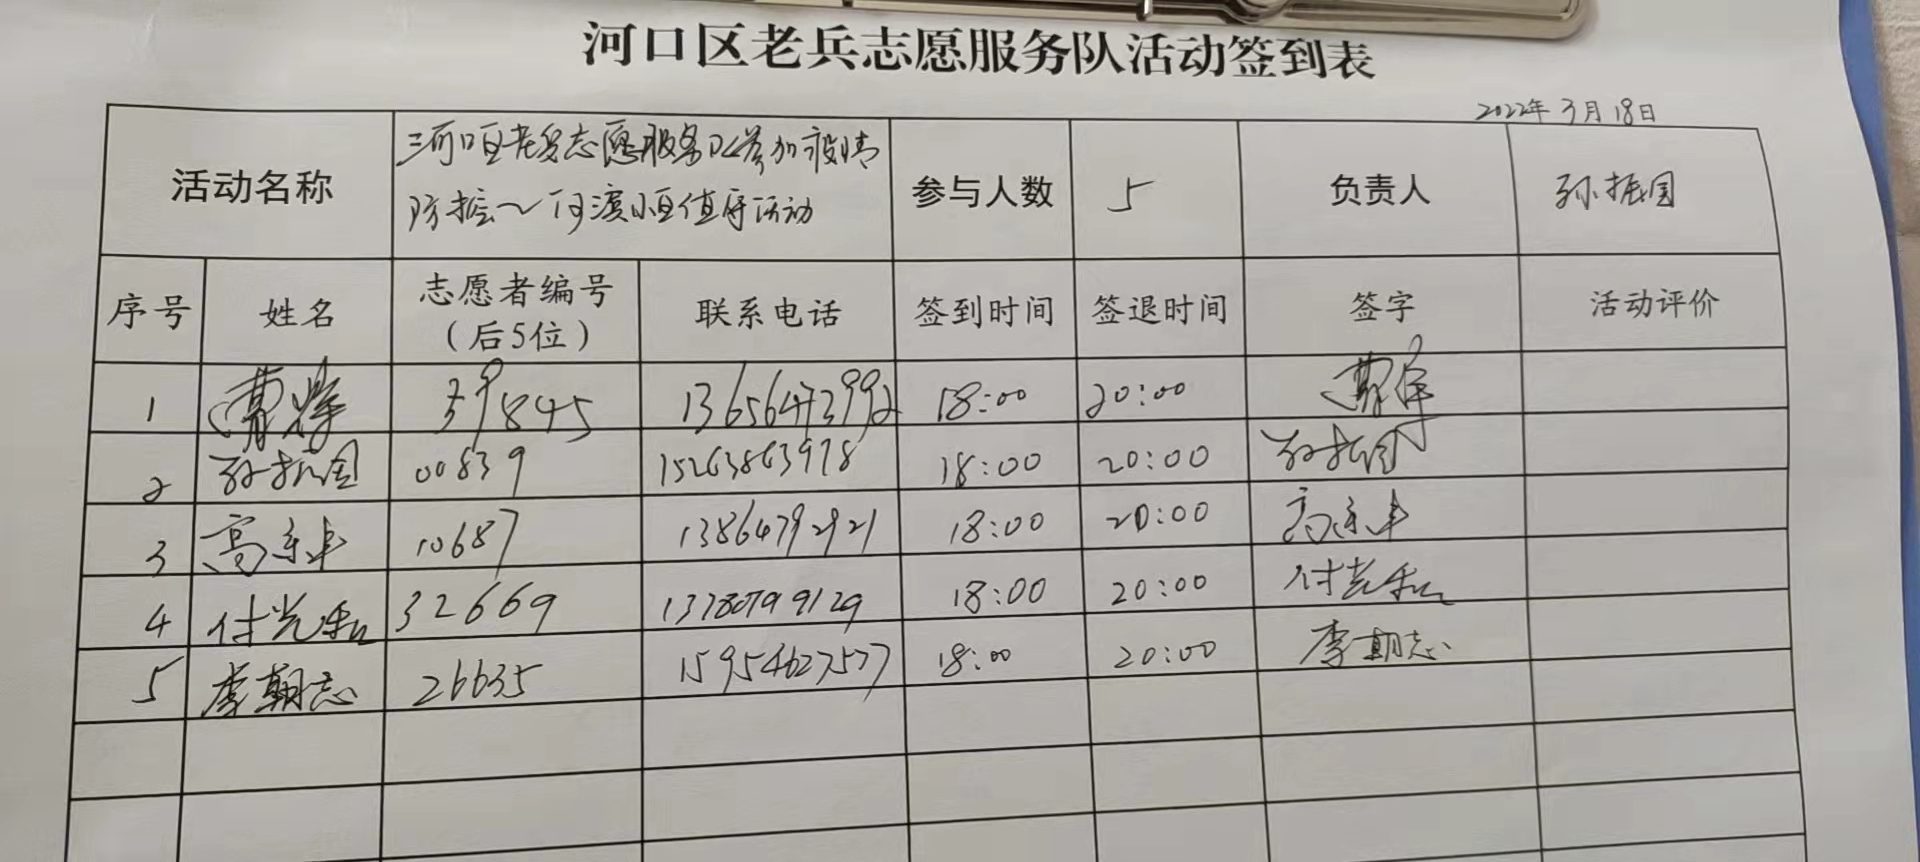 河口区老兵志愿服务队活动签到表
2022年3月18日
活动名称 河口区老兵志愿服务队参加疫情 参与人数 5 负责人 孙振国
防控～河滨小区值守活动
序号 姓名 志愿者编号 联系电话 签到时间 签退时间 签字 活动评价
（后5位）
1 39845 13656473992 18:00 20:00
2 孙振国 00839 15263863978 18:00 20:00 孙振国
3 10687 13864792921 18:00 20:00
4 付光和 32669 13780799129 18:00 20:00 付光和
5 李朝志 26635 15954627577 18:00 20:00 李朝志